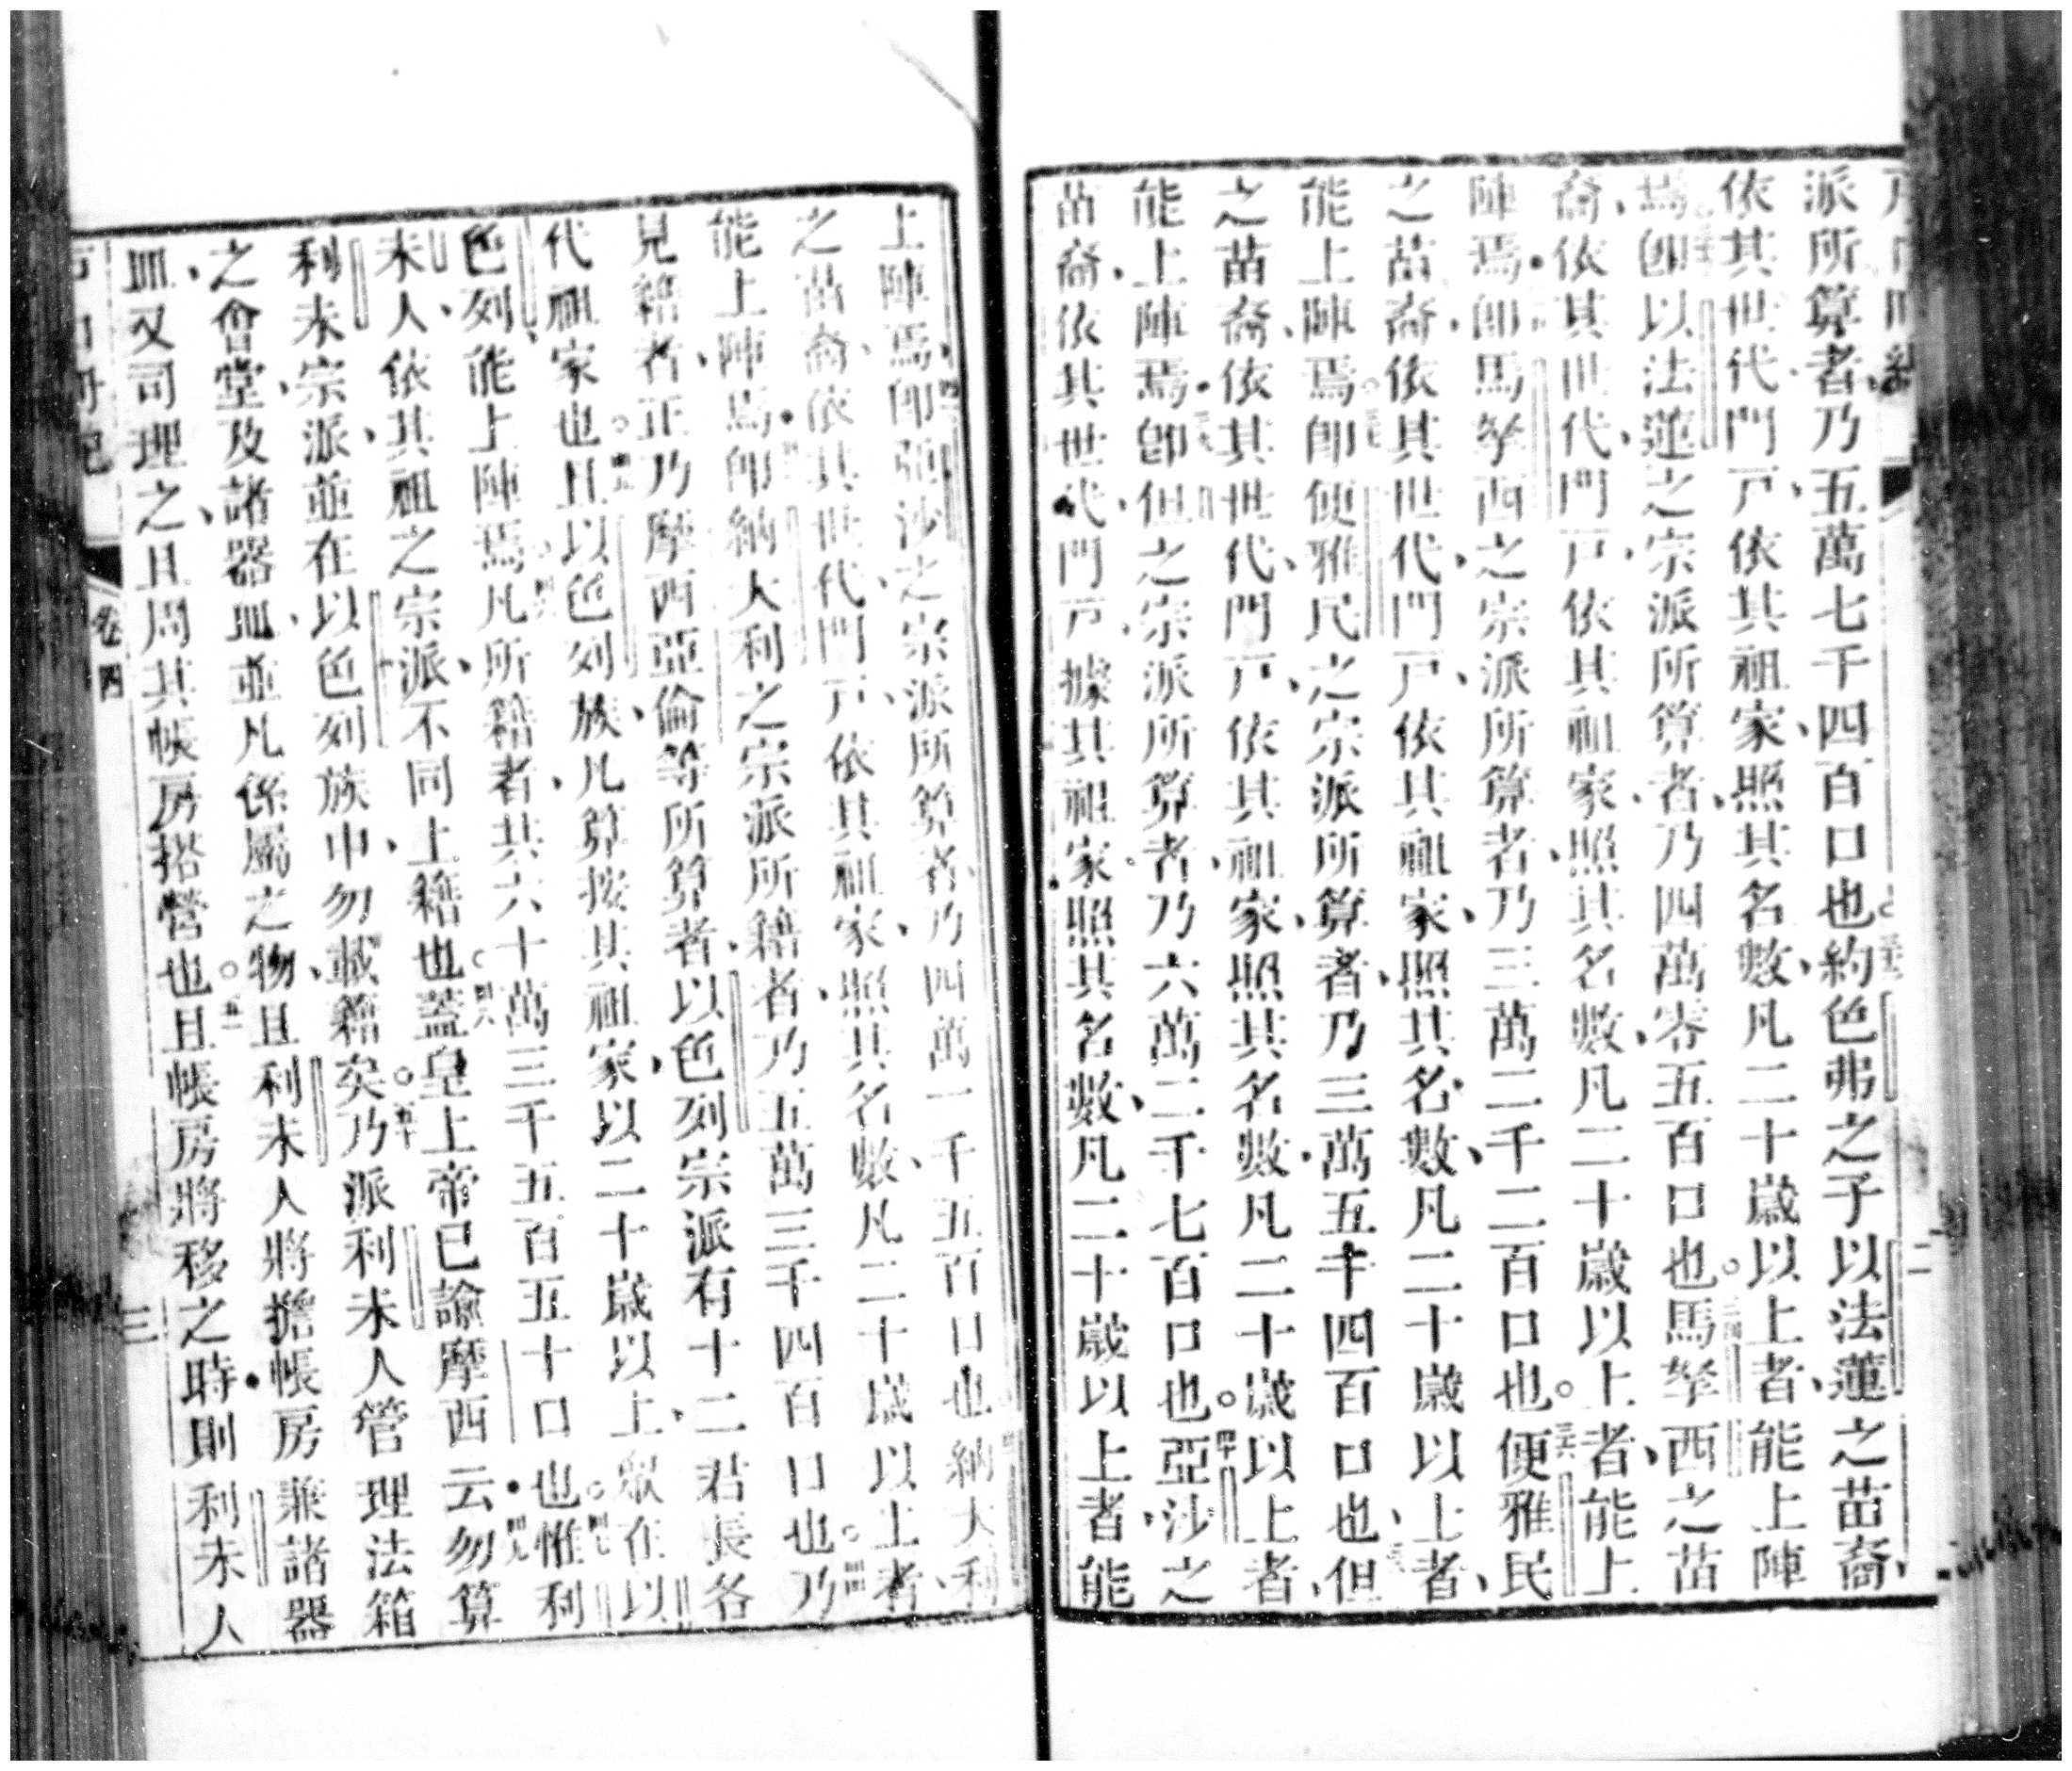 派所算者、乃五萬七千四百口也。約色弗之子以法蓮之苗裔、
依其世代門戸、依其祖家、照其名數、凡二十歲以上者、能上陣
焉、卽以法蓮之宗派所算者、乃四萬零五百口也。馬拏西之苗
裔、依其世代、門戸、依其祖家、照其名數、凡二十歲以上者、能上
陣焉、卽馬拏西之宗派所算者、乃三萬二千二百口也。便雅民
之苗裔、依其世代、門戸、依其祖家、照其名數、凡二十歲以上者、
能上陣焉、卽便雅民之宗派所算者、乃三萬五千四百口也、但
之苗裔、依其世代、門戸、依其祖家、照其名數、凡二十歲以上者、
能上陣焉、卽但之宗派所算者、乃六萬二千七百口也。亞沙之
苗裔、依其世代、門戸、據其祖家、照其名數、凡二十歲以上者、能
上陣焉、卽亞沙之宗派所算者、乃四萬一千五百口也納大利
之苗裔、依其世代、門戸、依其祖家、照其名數、凡二十歲以上者、
能上陣焉、卽納大利之宗派所籍者、乃五萬三千四百口也。乃
見籍者、正乃摩西亞倫等所算者、以色列宗派有十二君長各
代祖家也。且以色列族、凡算按其祖家、以二十歲以上、眾在以
色列、能上陣焉。凡所籍者、共六十萬三千五百五十口也。惟利
未人、依其祖之宗派、不同上籍也。蓋皇上帝已諭摩西云、勿算
利未宗派、並在以色列族中、勿載籍矣。乃派利未人管理法箱
之會堂、及諸器皿、並凡係屬之物、且利未人將擔帳房兼諸器
皿、又司理之、且周其帳房搭營也。且帳房將移之時、則利未人
卷四
三
二